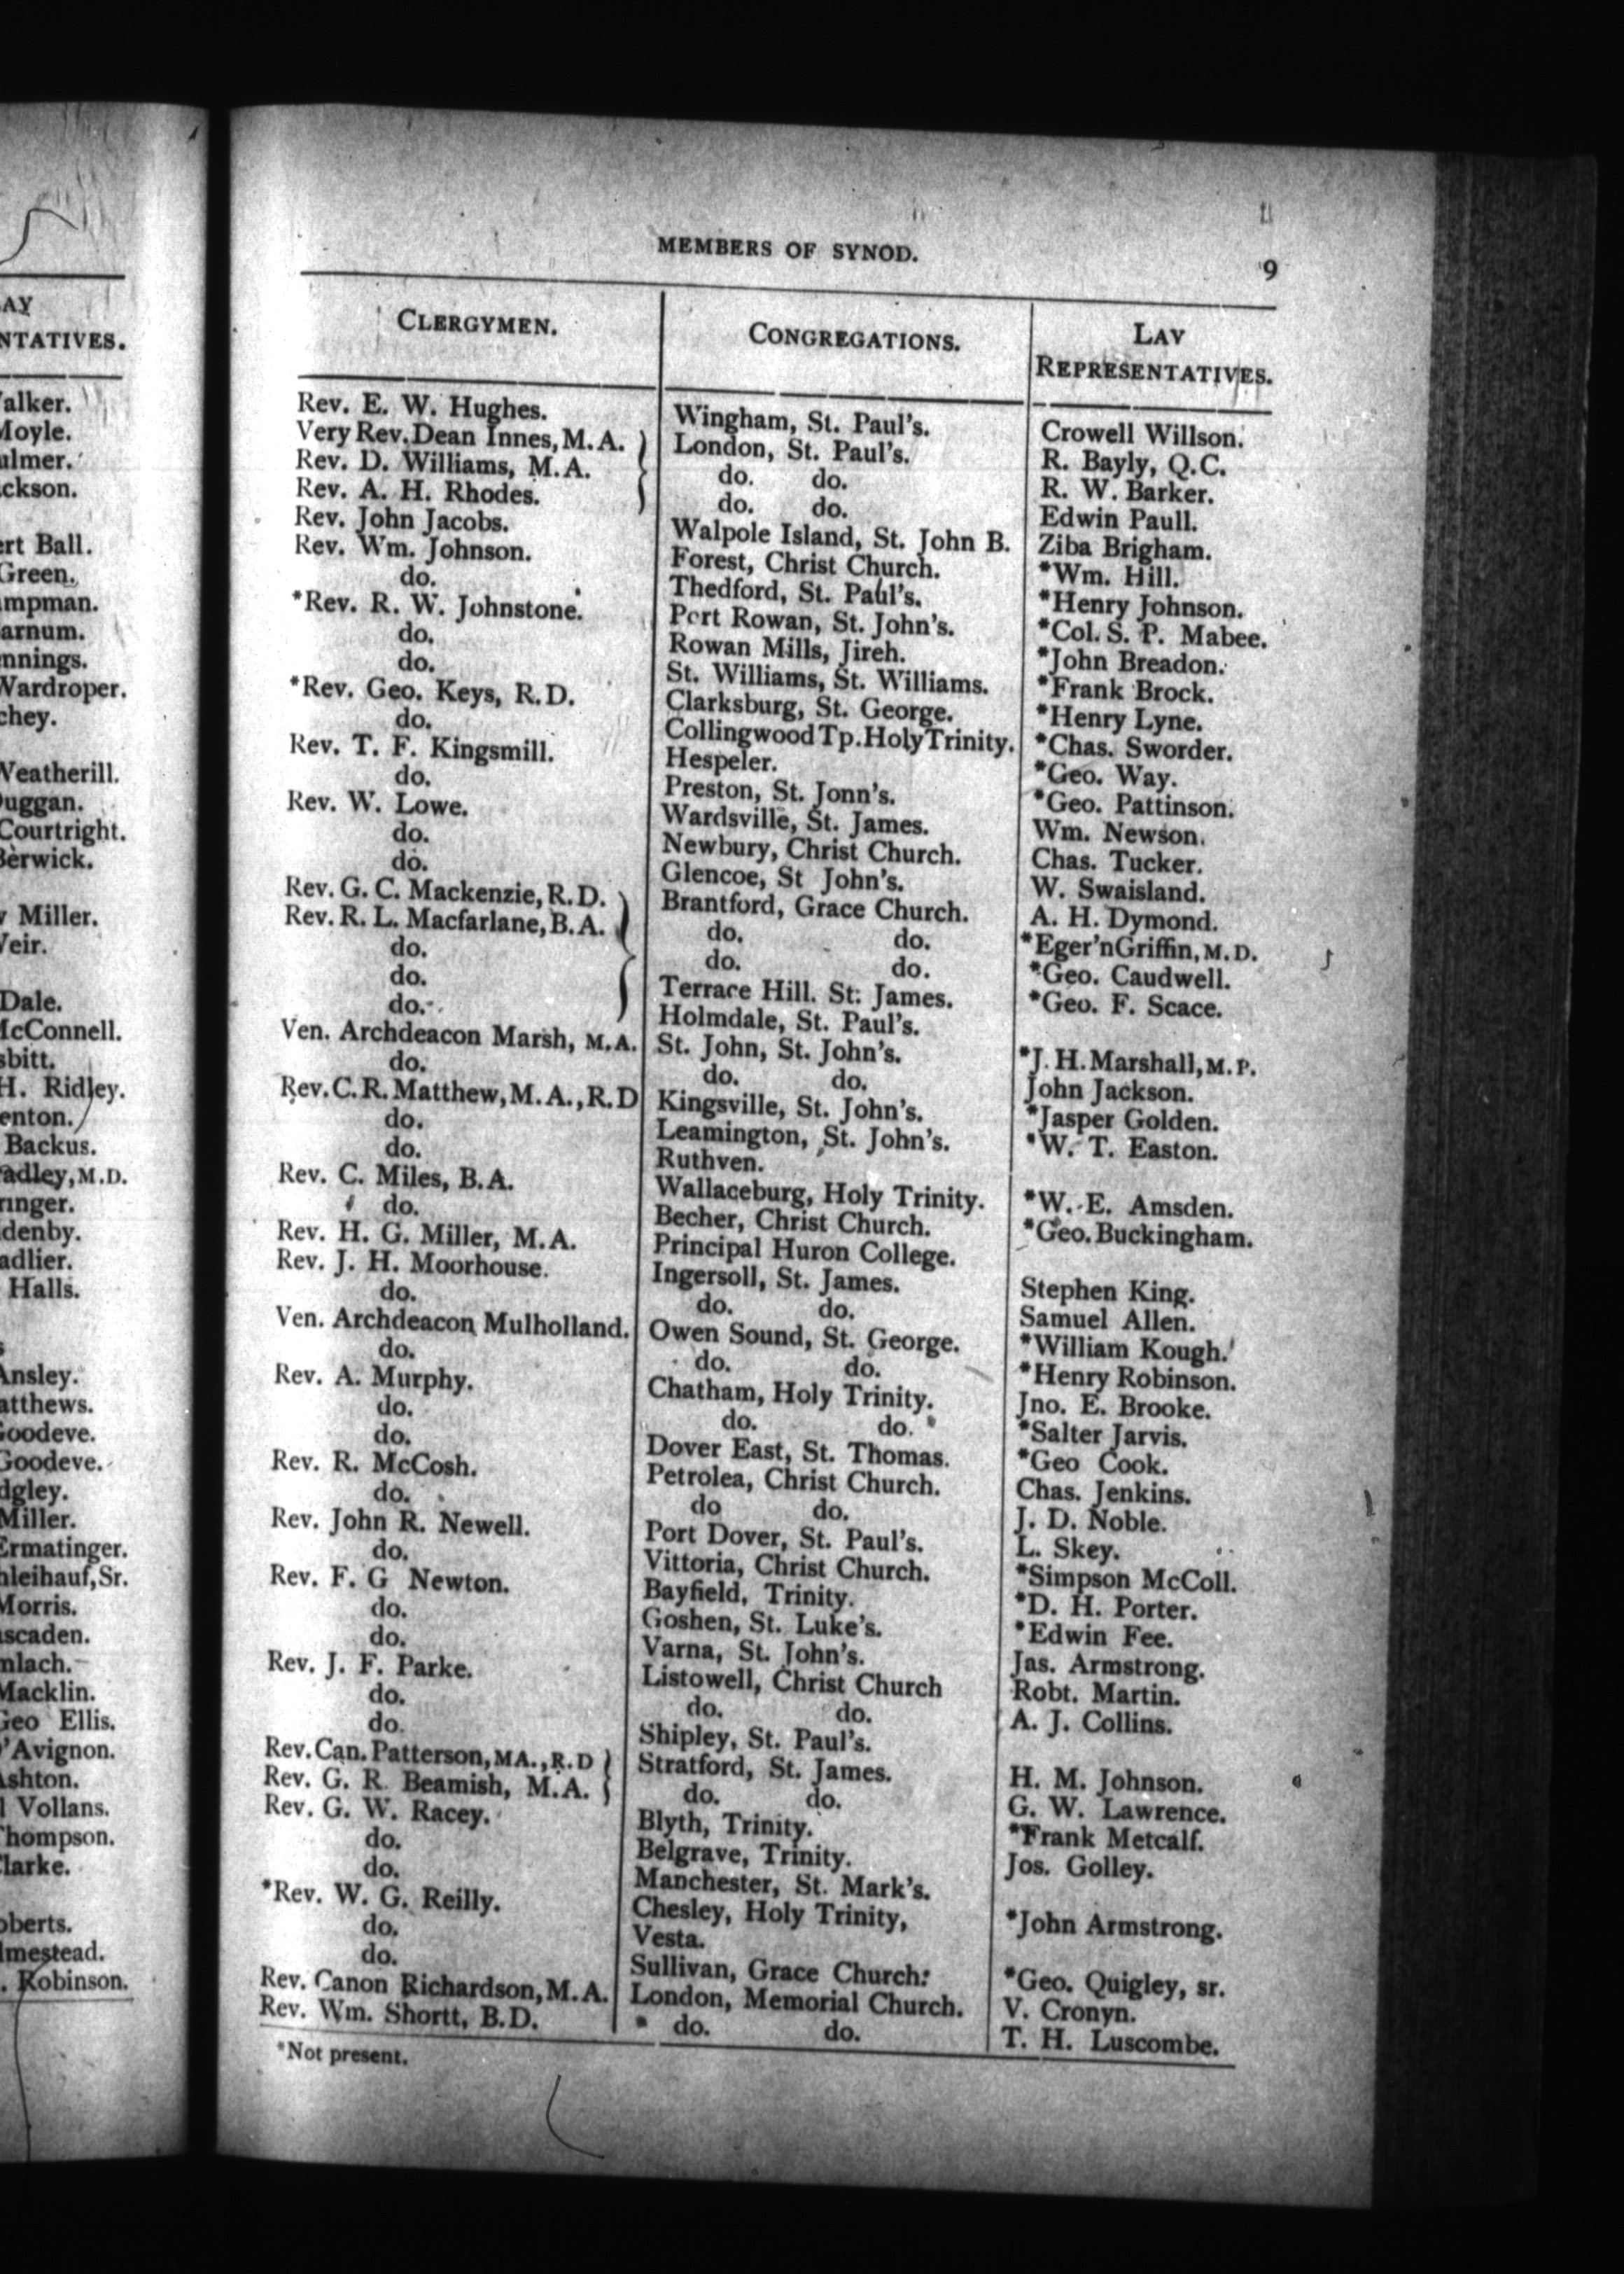 AY
NTATIVES.
alker.
Moyle.
ulmer.
ckson.
ert Ball.
Green.
mpman.
arnum.
nnings.
Wardroper.
chey.
Weatherill.
uggan.
Courtright.
Berwick.
Miller.
eir.
Dale.
McConnell.
sbitt.
H. Ridley.
enton.
Backus.
adley, M.D.
ringer.
denby.
adlier.
Halls.
Ansley.
atthews.
Goodeve.
Goodeve.
dgley.
Miller.
Ermatinger.
hleihauf, Sr.
Morris.
ascaden.
mlach.
Macklin.
Geo Ellis.
'Avignon.
Ashton.
l Vollans.
Thompson.
Clarke.
oberts.
lmestead.
. Robinson.
MEMBERS OF SYNOD.
9
CLERGYMEN. CONGREGATIONS. LAY
REPRESENTATIVES.
Rev. E. W. Hughes. Wingham, St. Paul's. Crowell Willson.
Very Rev. Dean Innes, M.A. London, St. Paul's. R. Bayly, Q.C.
Rev. D. Williams, M.A. do. do. R. W. Barker.
Rev. A. H. Rhodes. do. do. Edwin Paull.
Rev. John Jacobs. Walpole Island, St. John B. Ziba Brigham.
Rev. Wm. Johnson. Forest, Christ Church. *Wm. Hill.
do. Thedford, St. Paul's. *Henry Johnson.
*Rev. R. W. Johnstone. Port Rowan, St. John's. *Col. S. P. Mabee.
do. Rowan Mills, Jireh. *John Breadon.
do. St. Williams, St. Williams. *Frank Brock.
*Rev. Geo. Keys, R.D. Clarksburg, St. George. *Henry Lyne.
do. Collingwood Tp. Holy Trinity. *Chas. Sworder.
Rev. T. F. Kingsmill. Hespeler. *Geo. Way.
do. Preston, St. Jonn's. *Geo. Pattinson.
Rev. W. Lowe. Wardsville, St. James. Wm. Newson.
do. Newbury, Christ Church. Chas. Tucker.
do. Glencoe, St John's. W. Swaisland.
Rev. G. C. Mackenzie, R.D. Brantford, Grace Church. A. H. Dymond.
Rev. R. L. Macfarlane, B.A. do. do. *Eger'n Griffin, M.D.
do. do. do. *Geo. Caudwell.
do. Terrace Hill. St. James. *Geo. F. Scace.
do. Holmdale, St. Paul's.
Ven. Archdeacon Marsh, M.A. St. John, St. John's. *J. H. Marshall, M.P.
do. do. do. John Jackson.
Rev. C. R. Matthew, M.A., R.D Kingsville, St. John's. *Jasper Golden.
do. Leamington, St. John's. *W. T. Easton.
do. Ruthven.
Rev. C. Miles, B.A. Wallaceburg, Holy Trinity. *W. E. Amsden.
do. Becher, Christ Church. *Geo. Buckingham.
Rev. H. G. Miller, M.A. Principal Huron College.
Rev. J. H. Moorhouse. Ingersoll, St. James. Stephen King.
do. do. do. Samuel Allen.
Ven. Archdeacon Mulholland. Owen Sound, St. George. *William Kough.
do. do. do. *Henry Robinson.
Rev. A. Murphy. Chatham, Holy Trinity. Jno. E. Brooke.
do. do. do. *Salter Jarvis.
do. Dover East, St. Thomas. *Geo Cook.
Rev. R. McCosh. Petrolea, Christ Church. Chas. Jenkins.
do. do do. J. D. Noble.
Rev. John R. Newell. Port Dover, St. Paul's. L. Skey.
do. Vittoria, Christ Church. *Simpson McColl.
Rev. F. G Newton. Bayfield, Trinity. *D. H. Porter.
do. Goshen, St. Luke's. *Edwin Fee.
do. Varna, St. John's. Jas. Armstrong.
Rev. J. F. Parke. Listowell, Christ Church Robt. Martin.
do. do. do. A. J. Collins.
do. Shipley, St. Paul's.
Rev. Can. Patterson, MA., R.D Stratford, St. James. H. M. Johnson.
Rev. G. R. Beamish, M.A. do. do. G. W. Lawrence.
Rev. G. W. Racey. Blyth, Trinity. *Frank Metcalf.
do. Belgrave, Trinity. Jos. Golley.
do. Manchester, St. Mark's.
*Rev. W. G. Reilly. Chesley, Holy Trinity, *John Armstrong.
do. Vesta.
do. Sullivan, Grace Church. *Geo. Quigley, sr.
Rev. Canon Richardson, M.A. London, Memorial Church. V. Cronyn.
Rev. Wm. Shortt, B.D. do. do. T. H. Luscombe.
*Not present.